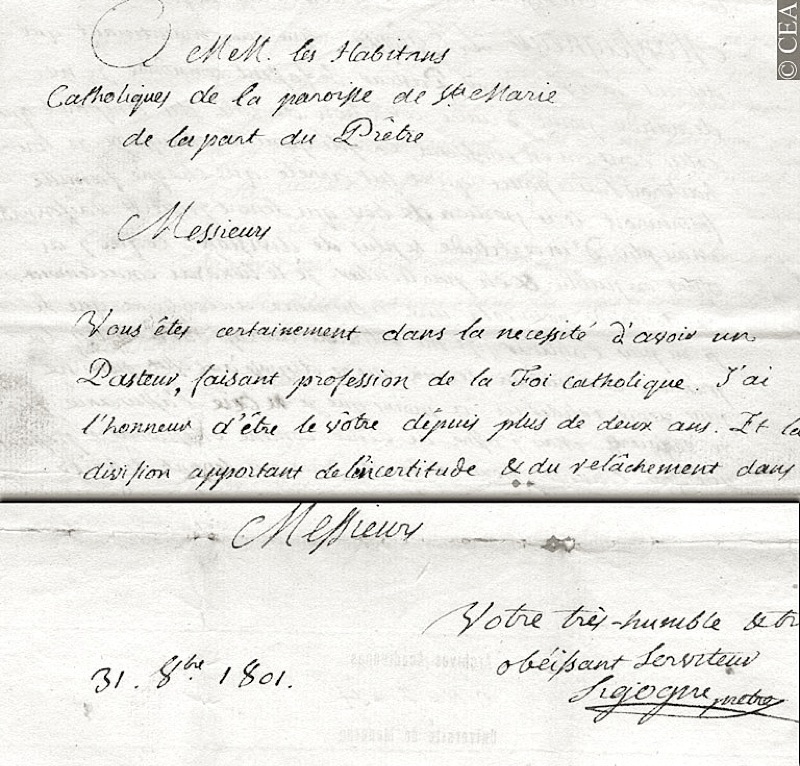 A MM. les Habitans
Catholiques de la paroisse de Ste Marie
de la part du Prêtre
Messieurs
Vous êtes certainement dans la necessité d'avoir un
Pasteur, faisant profession de la Foi catholique. J'ai
l'honneur d'être le vôtre depuis plus de deux ans. Et la
division apportant de l'incertitude & du relâchement dans
Messieurs
Votre très-humble & tr
obéissant Serviteur
31. 8bre 1801.
Sigogne prêtre
© CEA